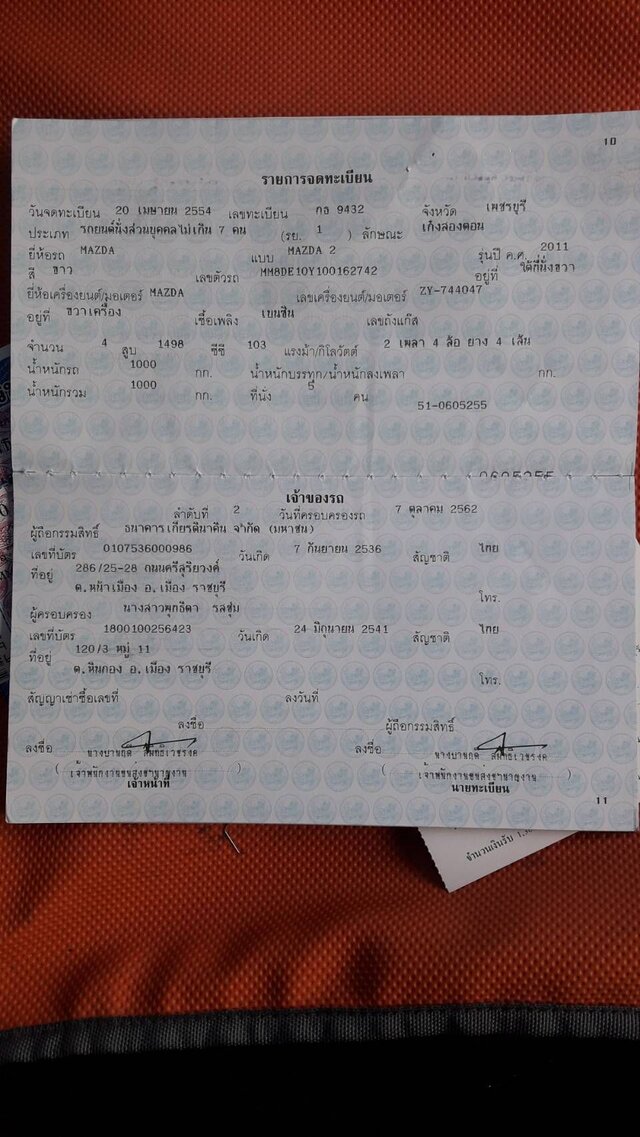 10
รายการจดทะเบียน
วันจดทะเบียน 20 เมษายน 2554 เลขทะเบียน กธ 9432 จังหวัด เพชรบุรี
ประเภท รถยนต์นั่งส่วนบุคคลไม่เกิน 7 คน (รย. 1 ) ลักษณะ เก๋งสองตอน
ยี่ห้อรถ MAZDA แบบ MAZDA 2 รุ่นปี ค.ศ. 2011
สี ขาว เลขตัวรถ MM8DE10Y100162742 อยู่ที่ ใต้ที่นั่งขวา
ยี่ห้อเครื่องยนต์/มอเตอร์ MAZDA เลขเครื่องยนต์/มอเตอร์ ZY-744047
อยู่ที่ ขวาเครื่อง เชื้อเพลิง เบนซิน เลขถังแก๊ส
จำนวน 4 สูบ 1498 ซีซี 103 แรงม้า/กิโลวัตต์ 2 เพลา 4 ล้อ ยาง 4 เส้น
น้ำหนักรถ 1000 กก. น้ำหนักบรรทุก/น้ำหนักลงเพลา กก.
น้ำหนักรวม 1000 กก. ที่นั่ง 5 คน
51-0605255
0605255
เจ้าของรถ
ลำดับที่ 2 วันที่ครอบครองรถ 7 ตุลาคม 2562
ผู้ถือกรรมสิทธิ์ ธนาคารเกียรตินาคิน จำกัด (มหาชน)
เลขที่บัตร 0107536000986 วันเกิด 7 กันยายน 2536 สัญชาติ ไทย
ที่อยู่ 286/25-28 ถนนศรีสุริยวงศ์
ต.หน้าเมือง อ.เมือง ราชบุรี โทร.
ผู้ครอบครอง นางสาวพุทธิดา รสชุ่ม
เลขที่บัตร 1800100256423 วันเกิด 24 มิถุนายน 2541 สัญชาติ ไทย
ที่อยู่ 120/3 หมู่ 11
ต.หินกอง อ.เมือง ราชบุรี โทร.
สัญญาเช่าซื้อเลขที่ ลงวันที่
ลงชื่อ ผู้ถือกรรมสิทธิ์
ลงชื่อ ลงชื่อ
( เจ้าพนักงานขนส่งชำนาญงาน ) ( เจ้าพนักงานขนส่งชำนาญงาน )
เจ้าหน้าที่ นายทะเบียน
11
จำนวนเงินรับ